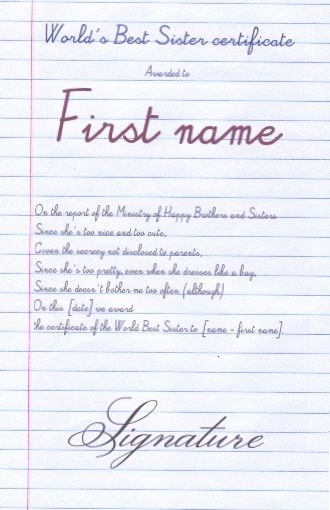 World's Best Sister certificate
Awarded to
First name
On the report of the Ministry of Happy Brothers and Sisters
Since she's too nice and too cute,
Given the secrecy not disclosed to parents,
Since she's too pretty, even when she dresses like a bag,
Since she doesn't bother me too often (although)
On this [date] we award
the certificate of the World Best Sister to [name - first name].
Signature